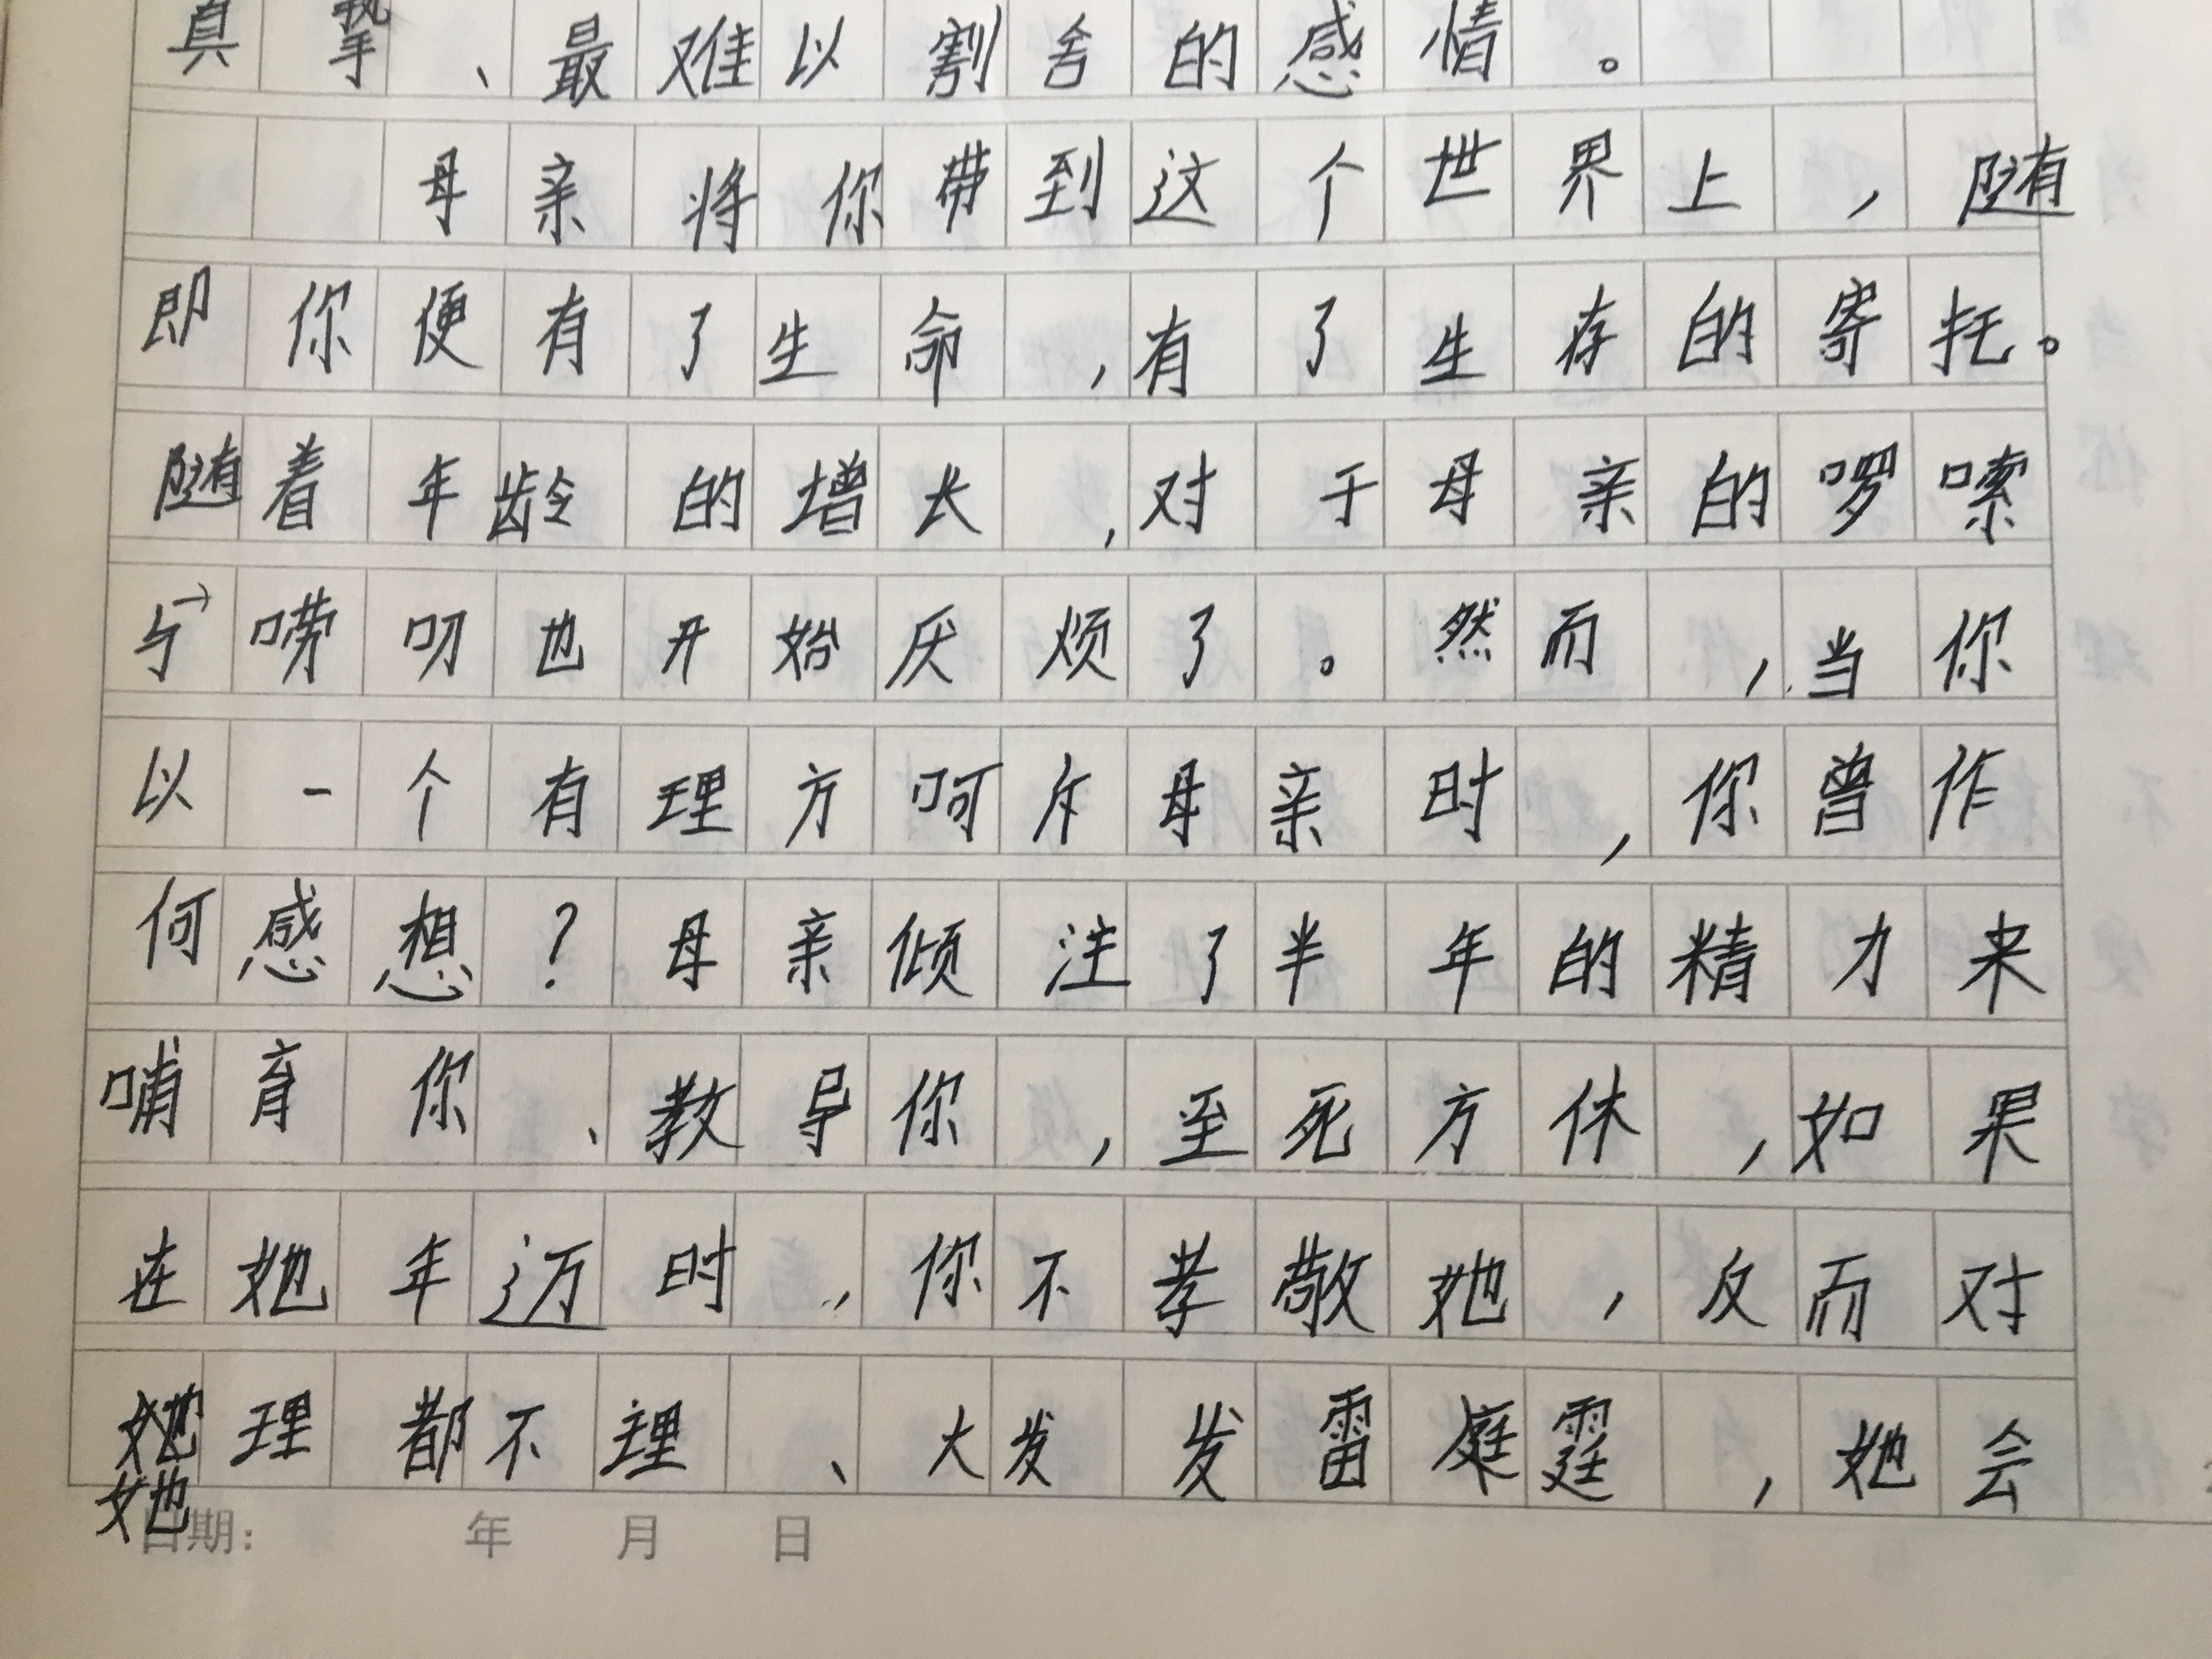 真挚、最难以割舍的感情。
母亲将你带到这个世界上,随
即你便有了生命,有了生存的寄托。
随着年龄的增长,对于母亲的啰嗦
与唠叨也开始厌烦了。然而,当你
以一个有理方呵斥母亲时,你曾作
何感想?母亲倾注了半年的精力来
哺育你、教导你,至死方休,如果
在她年迈时,你不孝敬她,反而对
她理都不理、大发发雷庭霆,她会
她
日期: 年 月 日